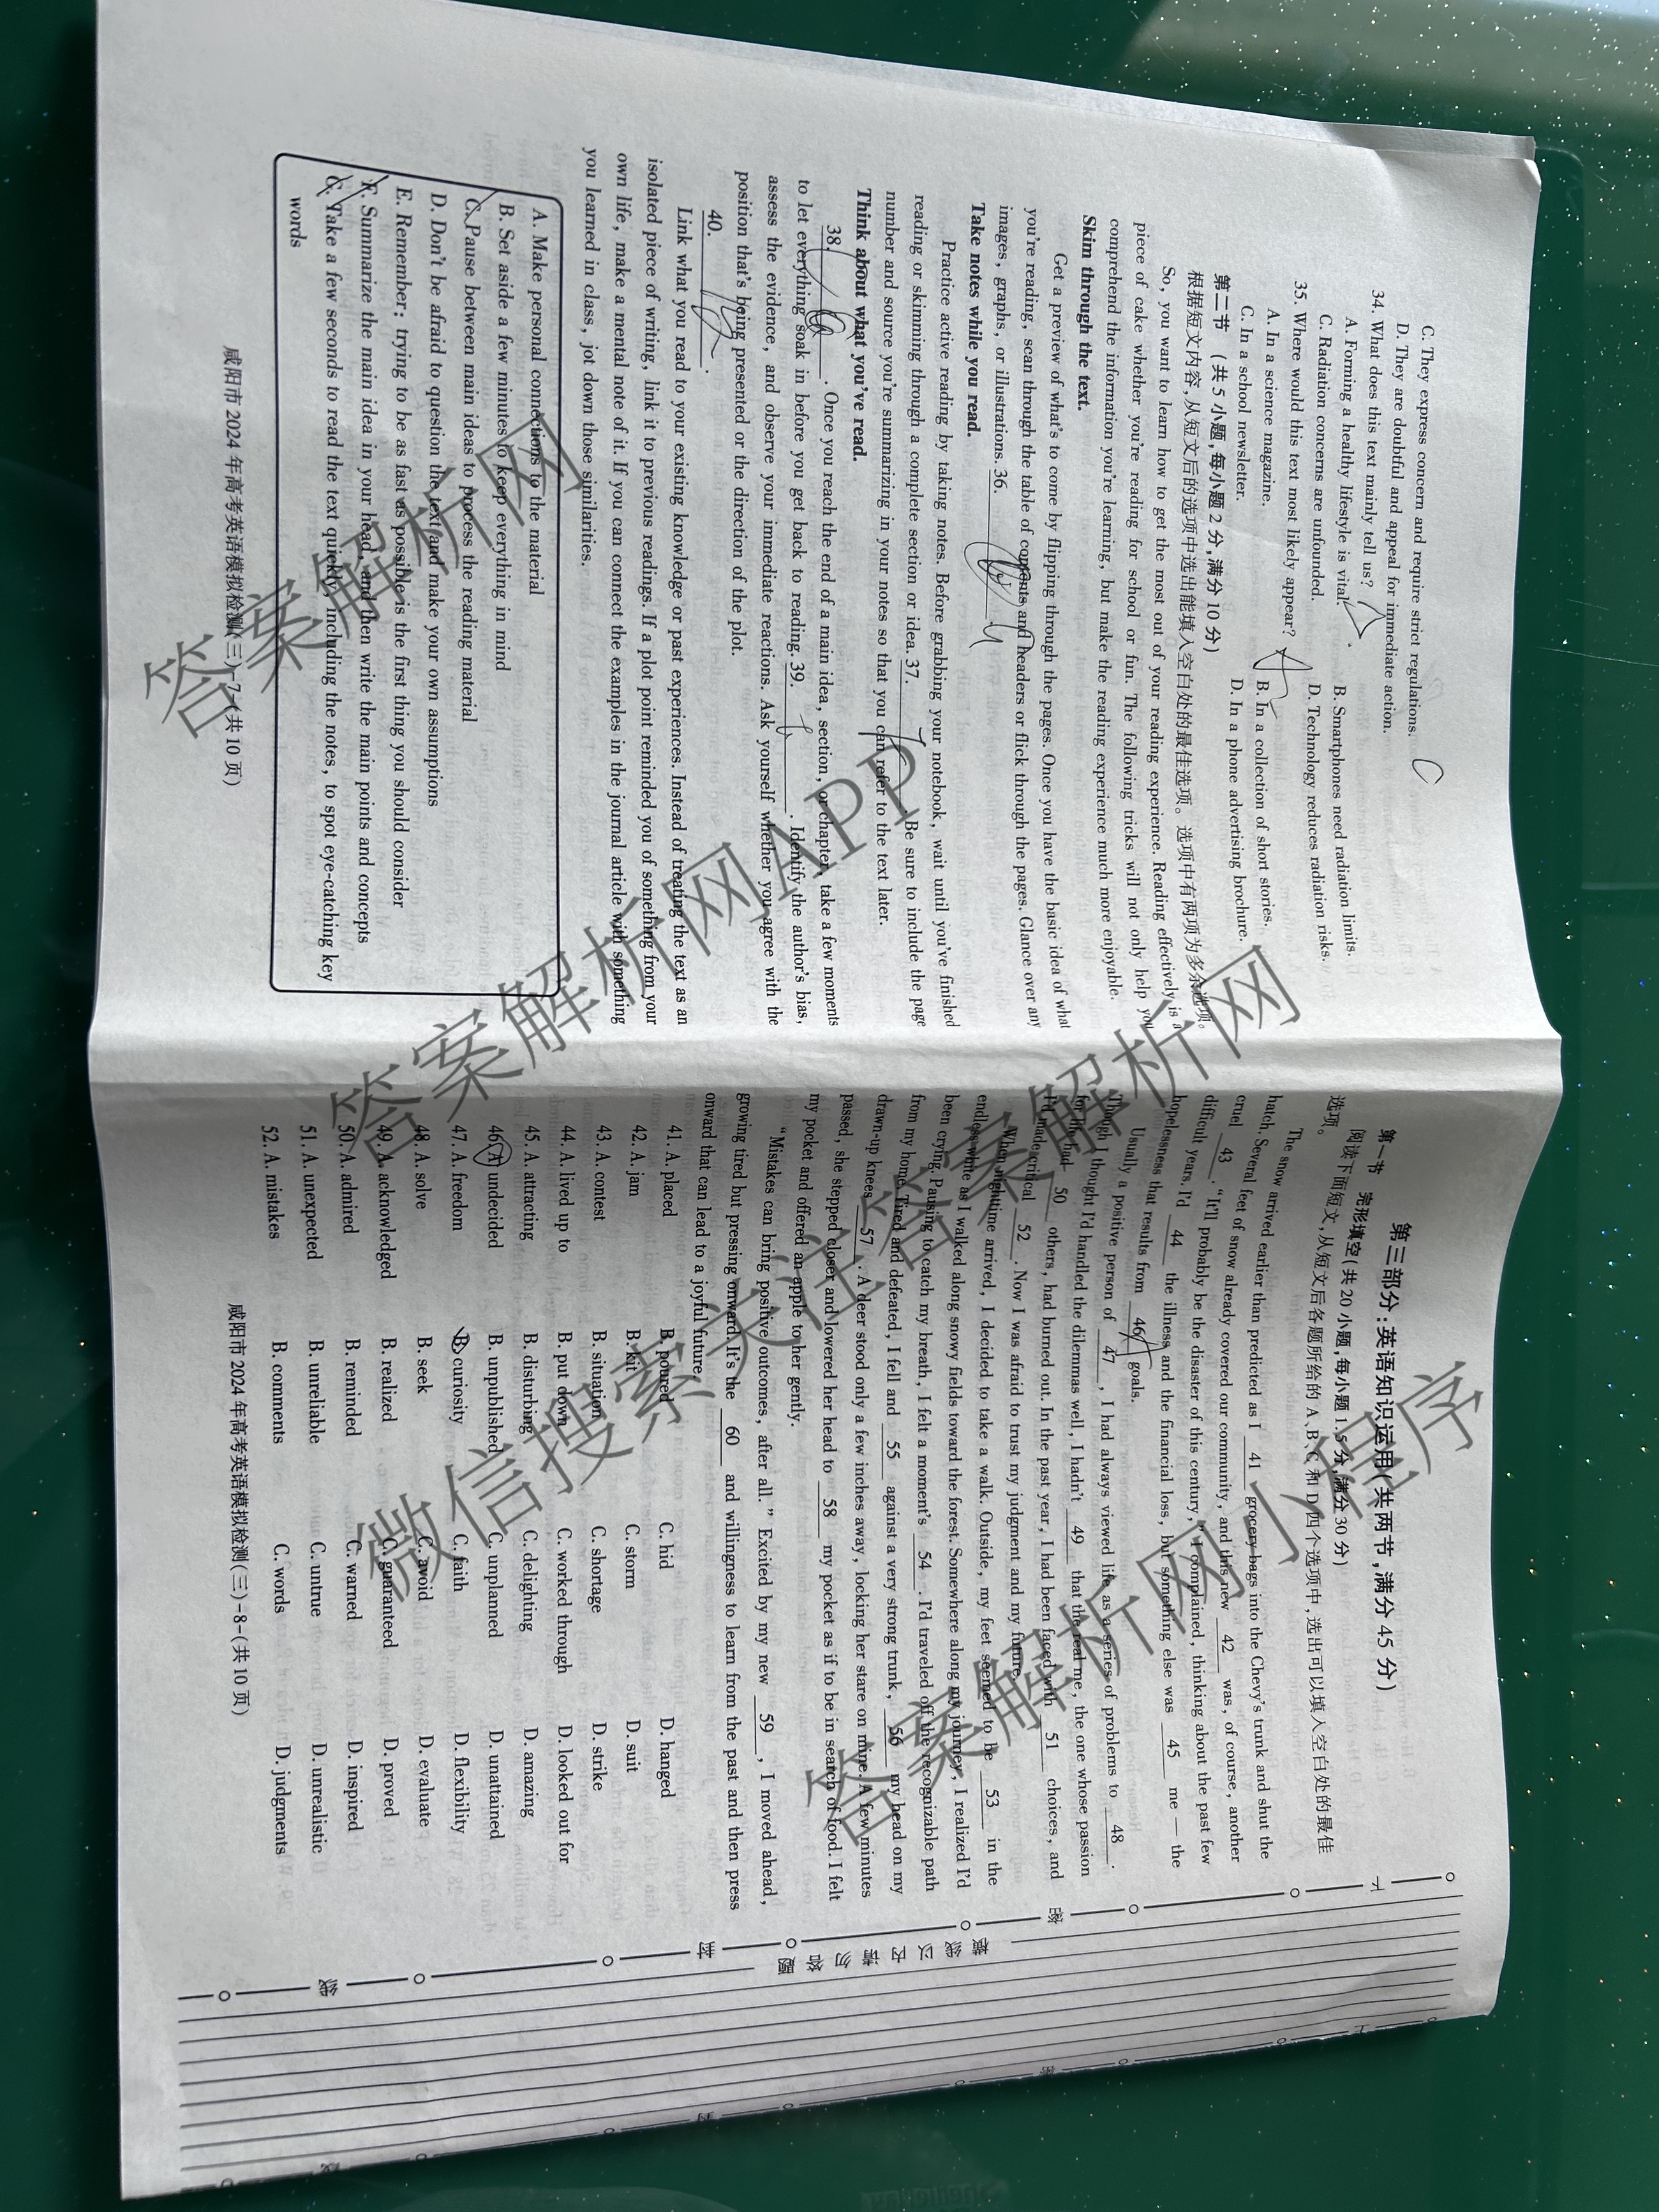 C. They express concern and require strict regulations.
D. They are doubtful and appeal for immediate action.
34. What does this text mainly tell us?
A. Forming a healthy lifestyle is vital. B. Smartphones need radiation limits.
C. Radiation concerns are unfounded. D. Technology reduces radiation risks.
35. Where would this text most likely appear?
A. In a science magazine. B. In a collection of short stories.
C. In a school newsletter. D. In a phone advertising brochure.
第二节 (共 5 小题,每小题 2 分,满分 10 分)
根据短文内容,从短文后的选项中选出能填入空白处的最佳选项。选项中有两项为多余选项。
So, you want to learn how to get the most out of your reading experience. Reading effectively is a
piece of cake whether you're reading for school or fun. The following tricks will not only help you
comprehend the information you're learning, but make the reading experience much more enjoyable.
Skim through the text.
Get a preview of what's to come by flipping through the pages. Once you have the basic idea of what
you're reading, scan through the table of contents and headers or flick through the pages. Glance over any
images, graphs, or illustrations. 36.
Take notes while you read.
Practice active reading by taking notes. Before grabbing your notebook, wait until you've finished
reading or skimming through a complete section or idea. 37. . Be sure to include the page
number and source you're summarizing in your notes so that you can refer to the text later.
Think about what you've read.
38. . Once you reach the end of a main idea, section, or chapter, take a few moments
to let everything soak in before you get back to reading. 39. . Identify the author's bias,
assess the evidence, and observe your immediate reactions. Ask yourself whether you agree with the
position that's being presented or the direction of the plot.
40. .
Link what you read to your existing knowledge or past experiences. Instead of treating the text as an
isolated piece of writing, link it to previous readings. If a plot point reminded you of something from your
own life, make a mental note of it. If you can connect the examples in the journal article with something
you learned in class, jot down those similarities.
A. Make personal connections to the material
B. Set aside a few minutes to keep everything in mind
C. Pause between main ideas to process the reading material
D. Don't be afraid to question the text and make your own assumptions
E. Remember: trying to be as fast as possible is the first thing you should consider
F. Summarize the main idea in your head, and then write the main points and concepts
G. Take a few seconds to read the text quickly, including the notes, to spot eye-catching key
words
咸阳市 2024 年高考英语模拟检测(三)-7-(共 10 页)
第三部分:英语知识运用(共两节,满分 45 分)
第一节 完形填空(共 20 小题,每小题 1.5 分,满分 30 分)
阅读下面短文,从短文后各题所给的 A、B、C 和 D 四个选项中,选出可以填入空白处的最佳
选项。
The snow arrived earlier than predicted as I 41 grocery bags into the Chevy's trunk and shut the
hatch. Several feet of snow already covered our community, and this new 42 was, of course, another
cruel 43 . "It'll probably be the disaster of this century," I complained, thinking about the past few
difficult years. I'd 44 the illness and the financial loss, but something else was 45 me — the
hopelessness that results from 46 goals.
Usually a positive person of 47 , I had always viewed life as a series of problems to 48 .
Though I thought I'd handled the dilemmas well, I hadn't 49 that the real me, the one whose passion
for life had 50 others, had burned out. In the past year, I had been faced with 51 choices, and
I'd made critical 52 . Now I was afraid to trust my judgment and my future.
When nighttime arrived, I decided to take a walk. Outside, my feet seemed to be 53 in the
endless white as I walked along snowy fields toward the forest. Somewhere along my journey, I realized I'd
been crying. Pausing to catch my breath, I felt a moment's 54 . I'd traveled off the recognizable path
from my home. Tired and defeated, I fell and 55 against a very strong trunk, 56 my head on my
drawn-up knees 57 . A deer stood only a few inches away, locking her stare on mine. A few minutes
passed, she stepped closer and lowered her head to 58 my pocket as if to be in search of food. I felt
my pocket and offered an apple to her gently.
"Mistakes can bring positive outcomes, after all." Excited by my new 59 , I moved ahead,
growing tired but pressing onward. It's the 60 and willingness to learn from the past and then press
onward that can lead to a joyful future.
41. A. placed B. poured C. hid D. hanged
42. A. jam B. kit C. storm D. suit
43. A. contest B. situation C. shortage D. strike
44. A. lived up to B. put down C. worked through D. looked out for
45. A. attracting B. disturbing C. delighting D. amazing
46. A. undecided B. unpublished C. unplanned D. unattained
47. A. freedom B. curiosity C. faith D. flexibility
48. A. solve B. seek C. avoid D. evaluate
49. A. acknowledged B. realized C. guaranteed D. proved
50. A. admired B. reminded C. warned D. inspired
51. A. unexpected B. unreliable C. untrue D. unrealistic
52. A. mistakes B. comments C. words D. judgments
咸阳市 2024 年高考英语模拟检测(三)-8-(共 10 页)
密 封 线
横线以内请勿答题
答案解析网
答案解析网APP
微信搜索关注答案解析网
答案解析网小程序